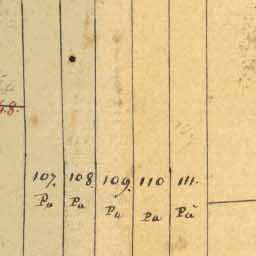 48.
107. 108. 109. 110 111.
Pa Pa Pa Pa Pa